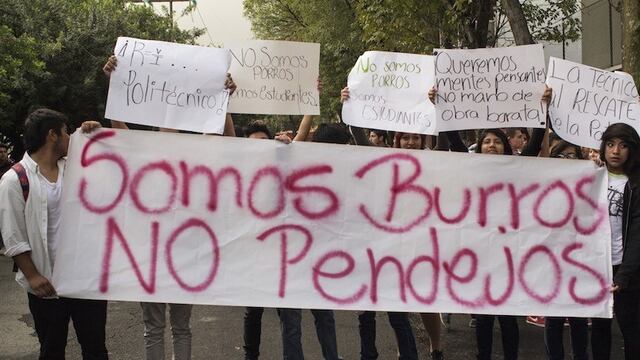 Politécnico!
NO SOMOS
PORROS
Somos estudiantes.
No somos
PORROS
SOMOS
ESTUDIANTES
Queremos
mentes pensantes
no man
obra barata
La técnica
AL RESCATE
de la
Somos Burros
NO Pendejos